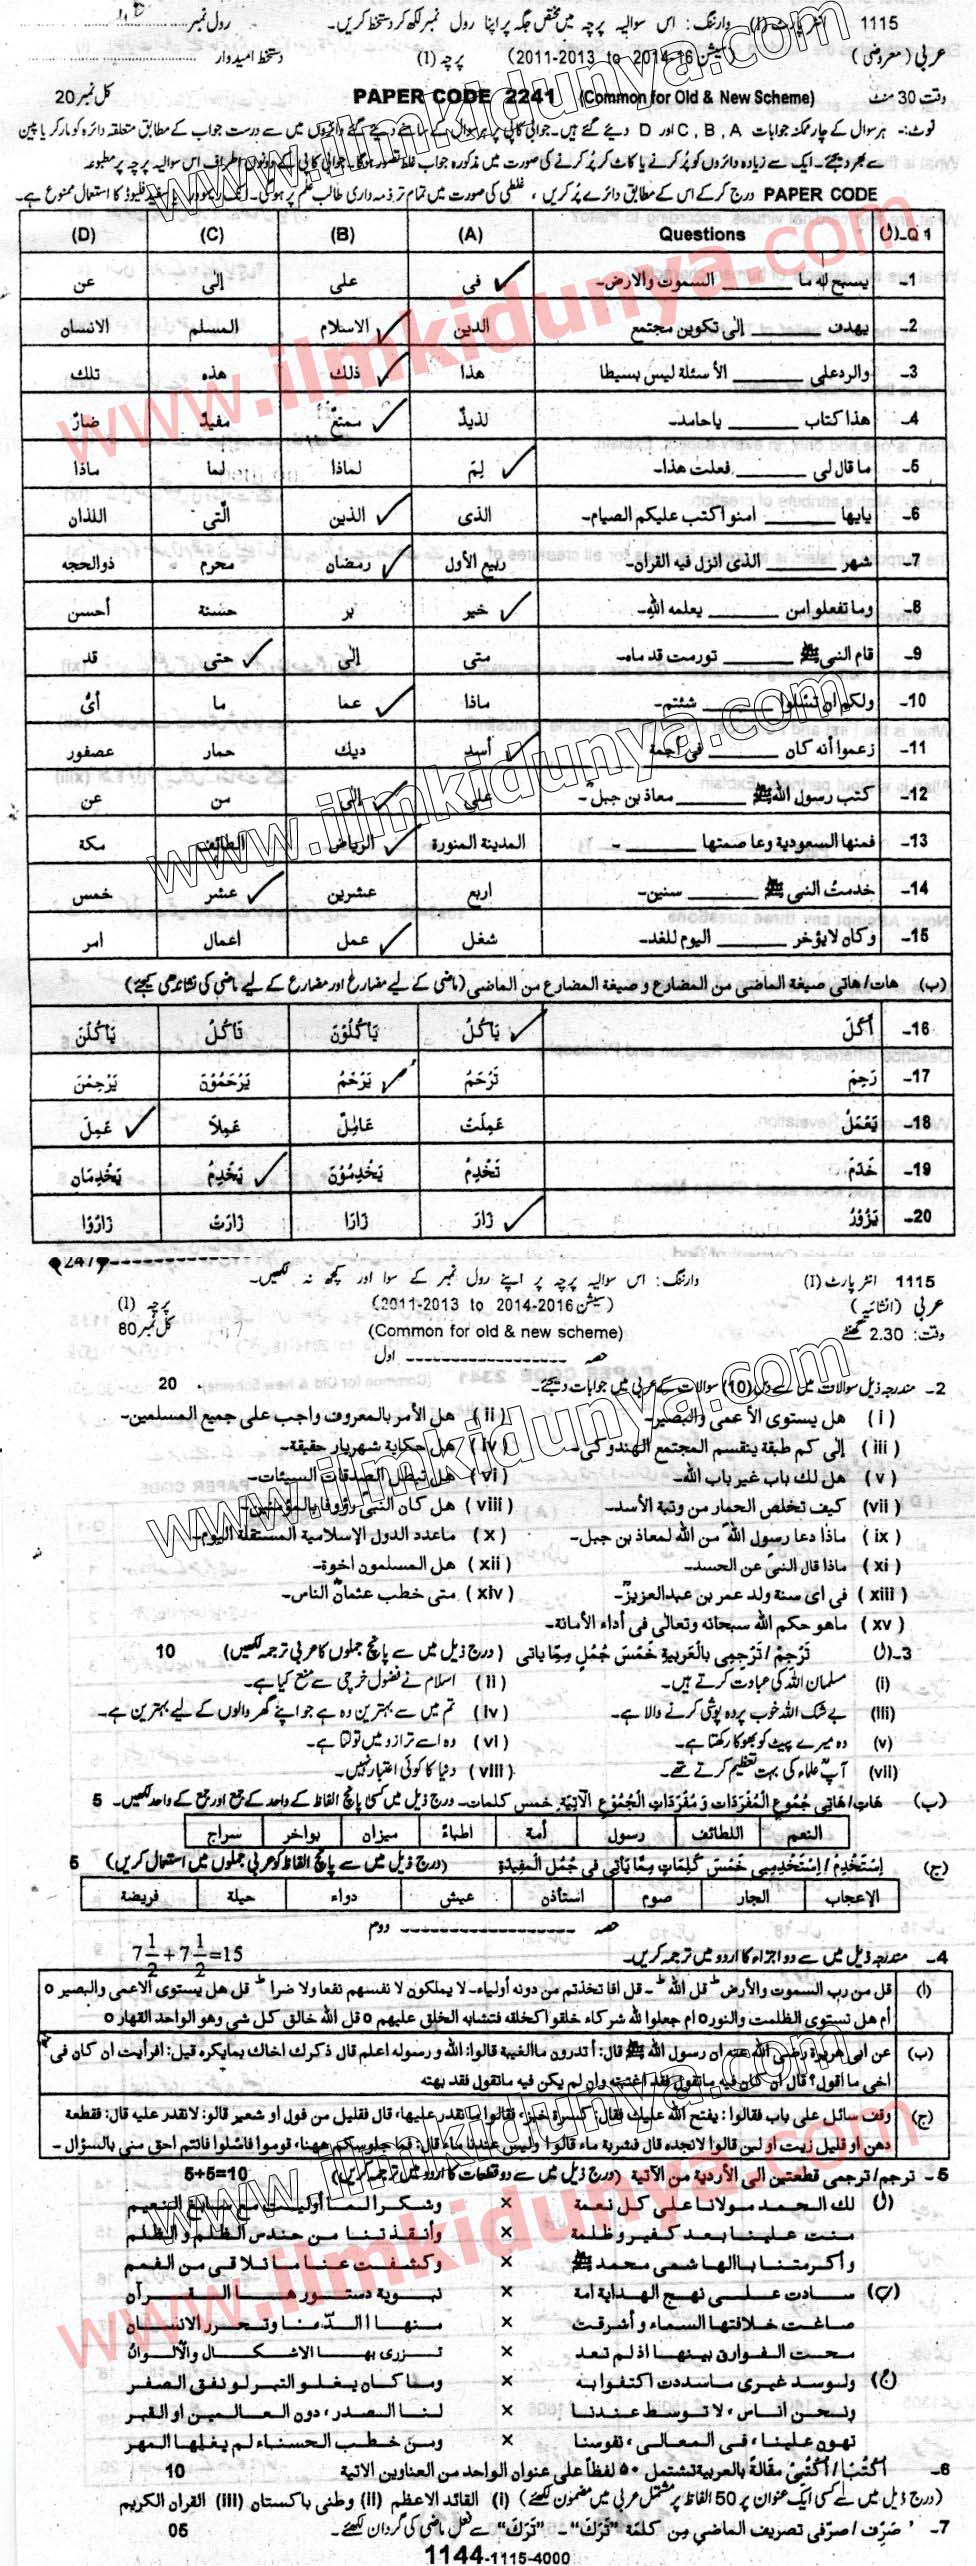 1115 انٹر پارٹ (I) وارننگ: اس سوالیہ پرچہ میں مختص جگہ پر اپنا رول نمبر لکھ کر دستخط کریں۔ رول نمبر
عربی (معروضی) (سیشن 16-2014 to 2011-2013) پرچہ (I) دستخط امیدوار
وقت 30 منٹ PAPER CODE 2241 (Common for Old & New Scheme) کل نمبر 20
نوٹ:- ہر سوال کے چار ممکنہ جوابات C, B, A اور D دیئے گئے ہیں۔ جوابی کاپی پر ہر سوال کے سامنے دیئے گئے دائروں میں سے درست جواب کے مطابق متعلقہ دائرہ کو مارکر یا پین
سے بھر دیجئے۔ ایک سے زیادہ دائروں کو پُر کرنے یا کاٹ کر پُر کرنے کی صورت میں مذکورہ جواب غلط تصور ہوگا۔ جوابی کاپی کے دونوں اطراف اس سوالیہ پرچہ پر مطبوعہ
PAPER CODE درج کر کے اس کے مطابق دائرے پُر کریں، غلطی کی صورت میں تمام تر ذمہ داری طالب علم پر ہوگی۔ سفید فلیوڈ کا استعمال ممنوع ہے۔
Q 1-(ا) Questions (A) (B) (C) (D)
1- يسبح له ما ______ السموت والارض- فى على إلى عن
2- يهدف ______ إلى تكوين مجتمع الدين الاسلام المسلم الانسان
3- والرد على ______ الأسئلة ليس بسيطا هذا ذلك هذه تلك
4- هذا كتاب ______ يا حامد- لذيذ ممتع مفيد ضار
5- ما قال لى ______ فعلت هذا- لِمَ لماذا لما ماذا
6- يايها ______ امنوا كتب عليكم الصيام- الذى الذين الّتى اللذان
7- شهر ______ الذى انزل فيه القران- ربيع الأول رمضان محرم ذوالحجه
8- وما تفعلوا من ______ يعلمه الله- خير بر حسنة أحسن
9- قام النبى ﷺ ______ تورمت قدماه- متى إلى حتى قد
10- ولكم ان تسئلوا ______ شئتم- ماذا عما ما أىُّ
11- زعموا أنه كان ______ فى أجمة أسد ديك حمار عصفور
12- كتب رسول الله ﷺ ______ معاذ بن جبل على إلى من عن
13- فمنها السعودية وعاصمتها ______ - المدينة المنورة الرياض الطائف مكة
14- خدمت النبى ﷺ ______ سنين- اربع عشرين عشر خمس
15- وكان لا يؤخر ______ اليوم للغد- شغل عمل اعمال امر
(ب) هات/هاتى صيغة الماضى من المضارع و صيغة المضارع من الماضى (ماضی کے لیے مضارع اور مضارع کے لیے ماضی کی نشاندہی کیجئے)
16- أَكَلَ يَأكُلُ يَأكُلُوْنَ تَأكُلُ يَأكُلْنَ
17- رَحِمَ تَرْحَمُ يَرْحَمُ يَرْحَمُوْنَ يَرْحَمْنَ
18- يَعْمَلُ عَمِلَتْ عَامِلٌ عَمِلَا عَمِلَ
19- خَدَمَ تَخْدِمُ يَخْدِمُوْنَ يَخْدِمُ يَخْدِمَانِ
20- يَزُوْرُ زَارَ زَارَا زَارَتْ زَارُوْا
1115 انٹر پارٹ (I) وارننگ: اس سوالیہ پرچہ پر اپنے رول نمبر کے سوا اور کچھ نہ لکھیں۔
عربی (انشائیہ) (سیشن 2014-2016 to 2011-2013) پرچہ (I)
وقت: 2.30 گھنٹے (Common for old & new scheme) کل نمبر 80
حصہ ---------------- اول
2- مندرجہ ذیل سوالات میں سے دس (10) سوالات کے عربی میں جوابات دیجئے۔ 20
(i) هل يستوى الأعمى والبصير- (ii) هل الأمر بالمعروف واجب على جميع المسلمين-
(iii) إلى كم طبقة ينقسم المجتمع الهندوكى- (iv) هل حكاية شهريار حقيقة-
(v) هل لك باب غير باب الله- (vi) هل تبطل الصدقات السيئات-
(vii) كيف تخلص الحمار من وثبة الأسد- (viii) هل كان النبى رؤوفا بالمؤمنين-
(ix) ماذا دعا رسول الله من الله لمعاذ بن جبل- (x) ماعدد الدول الإسلامية المستقلة اليوم-
(xi) ماذا قال النبى عن الحسد- (xii) هل المسلمون اخوة-
(xiii) فى اى سنة ولد عمر بن عبدالعزيز- (xiv) متى خطب عثمان الناس-
(xv) ماهو حكم الله سبحانه وتعالى فى أداء الأمانة-
3-(ا) تَرْجِمْ / تَرْجِمِى بِالْعَرَبِيةِ خَمْسَ جُمَلٍ مِمَّا يأتى (درج ذیل میں سے پانچ جملوں کا عربی ترجمہ لکھیں) 10
(i) مسلمان اللہ کی عبادت کرتے ہیں۔ (ii) اسلام نے فضول خرچی سے منع کیا ہے۔
(iii) بے شک اللہ خوب پردہ پوشی کرنے والا ہے۔ (iv) تم میں سے بہترین وہ ہے جو اپنے گھر والوں کے لیے بہترین ہے۔
(v) وہ میرے پیٹ کو بھوکا رکھتا ہے۔ (vi) وہ اسے ترازو میں تولتا ہے۔
(vii) آپ علماء کی بہت تعظیم کرتے تھے۔ (viii) دنیا کا کوئی اعتبار نہیں۔
(ب) هَاتِ/هَاتِى جُمُوعِ الْمُفْرَدَاتِ وَ مُفْرَدَاتِ الْجُمُوْعِ الآتِيَةِ خمس كلمات۔ درج ذیل میں کسی پانچ الفاظ کے واحد کے جمع اور جمع کے واحد لکھیں۔ 5
النعم اللطائف رسول أمة اطباءُ ميزان بواخر سراج
(ج) اِسْتَخْدِمْ / اِسْتَخْدِمِى خَمْسَ كَلِمَاتٍ مِمَّا يَأتِى فى جُمَلِ الْمُفِيْدَةِ (درج ذیل میں سے پانچ الفاظ کو عربی جملوں میں استعمال کریں) 5
الإعجاب الجار صوم استأذن عيش دواء حيلة فريضة
حصہ ---------------- دوم
4- مندرجہ ذیل میں سے دو اجزاء کا اردو میں ترجمہ کریں۔ 7 1/2 + 7 1/2 = 15
(ا) قل من رب السموت والأرض ط قل الله ط قل افاتخذتم من دونه أولياء- لا يملكون لا نفسهم نفعا ولا ضرا ط قل هل يستوى الاعمى والبصير o
أم هل تستوى الظلمت والنور o ام جعلوا لله شركاء خلقوا كخلقه فتشابه الخلق عليهم o قل الله خالق كل شى وهو الواحد القهار o
(ب) عن ابى هريرة رضى الله عنه ان رسول الله ﷺ قال: أتدرون ما الغيبة قالوا: الله و رسوله اعلم قال ذكرك اخاك بما يكره قيل: افرأيت ان كان فى
أخى ما أقول؟ قال ان كان فيه ماتقول فقد اغتبته وان لم يكن فيه ماتقول فقد بهته
(ج) وقف سائل على باب فقالوا: يفتح الله عليك فقال: كسرة خبز، فقالوا ما نقدر عليها، قال فقليل من فول او شعير قالوا: لا نقدر عليه قال: فقطعة
دهن او قليل زيت او لبن قالوا لا نجده قال فشربة ماء قالوا وليس عندنا ماء قال: فما جلوسكم ههنا، قوموا فاسئلوا فانتم احق منى بالسؤال-
5- ترجم / ترجمى قطعتين الى الأردية من الآتية (درج ذیل میں سے دو قطعات کا اردو میں ترجمہ کریں) 5+5=10
(ا) لك الحمد مولانا على كل نعمة × وشكرا لما أوليت مع سابغ النعيم
مننت علينا بعد كفر وظلمة × وأنقذتنا من حندس الظلم والظلم
وأكرمتنا بالهاشمى محمد ﷺ × وكشفت عنا ما تلاقى من الغمم
(ب) سادت على نهج الهداية امة × نبوية دستورها القرآن
صاغت خلافتها السماء وأشرقت × منها الدنا وتحرر الانسان
محت الفوارق بينها اذلم تعد × تزرى بها الاشكال والألوان
(ج) ولو سد غيرى ما سددت اكتفوا به × وما كان يغلو التبر لو نفق الصفر
ونحن اناس، لا توسط عندنا × لنا الصدر، دون العالمين او القبر
تهون علينا، فى المعالى، نفوسنا × ومن خطب الحسناء لم يغلها المهر
6- اُكْتُبْ / اُكْتُبِىْ مَقَالَةً بالعربية تشتمل ٥٠ لفظاً على عنوان الواحد من العناوين الاتية 10
(درج ذیل میں سے کسی ایک عنوان پر 50 الفاظ پر مشتمل عربی میں مضمون لکھئے) (i) القائد الاعظم (ii) وطنى باكستان (iii) القران الكريم
7- صَرِّف / صرّفى تصريف الماضي مِن كلمَة "تَرَكَ" - "تَرَكَ" سے فعل ماضی کی گردان لکھئے۔ 05
1144-1115-4000
www.ilmkidunya.com